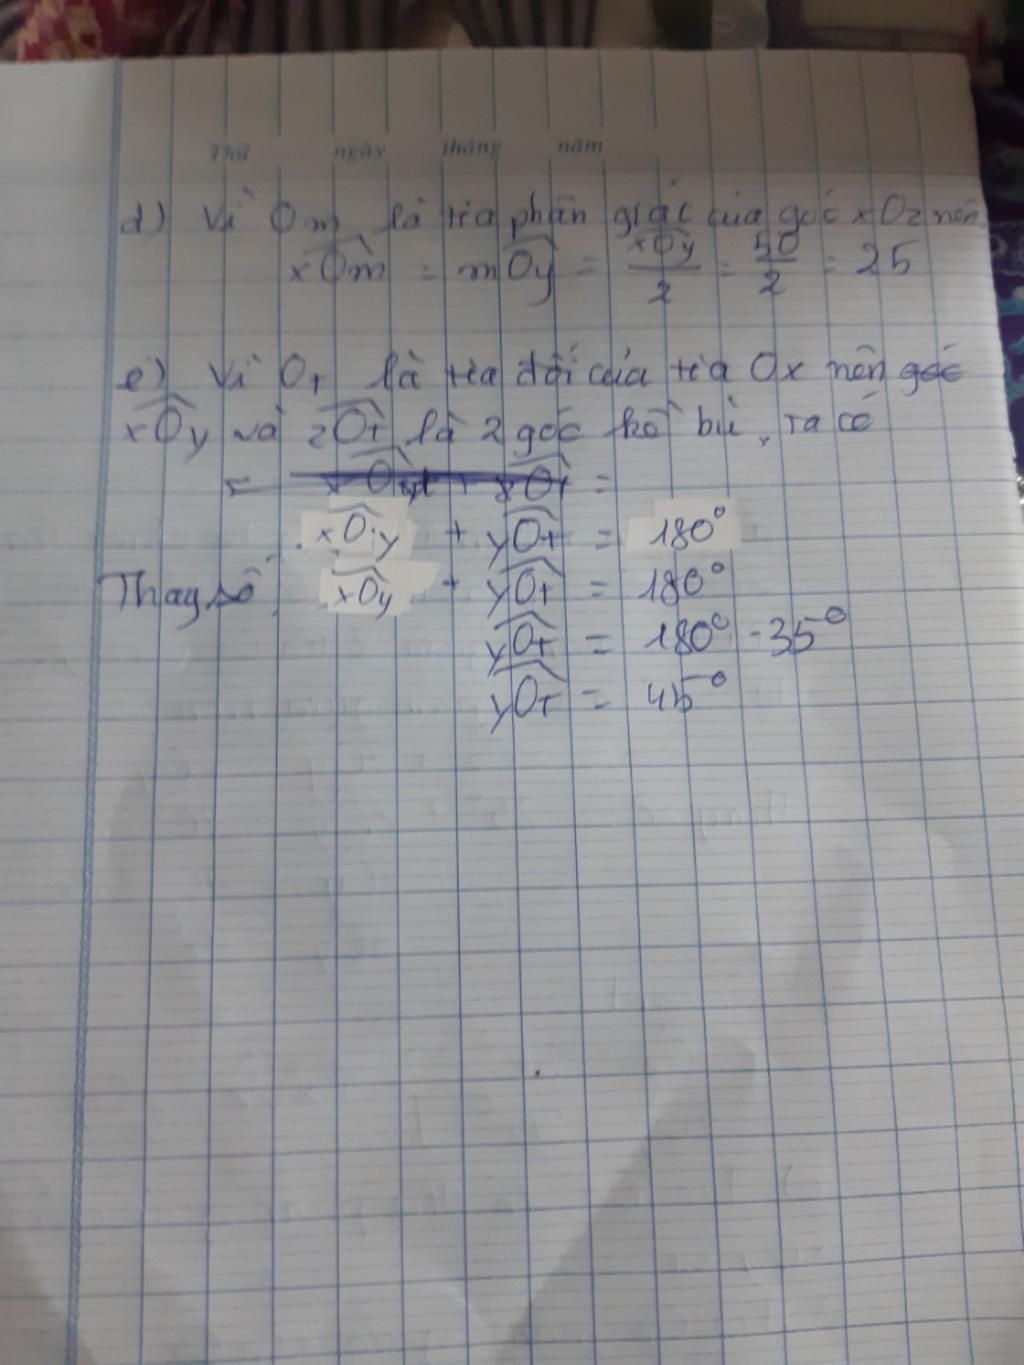 Thứ ngày tháng năm
d) Vì Om là tia phân giác của góc xOz nên
xOm = mOy = xOy/2 = 50/2 = 25
e) Vì Ot là tia đối của tia Ox nên góc
xOy và zOt là 2 góc kề bù, ta có
= + xOt =
xOy + yOt = 180°
Thay số: xOy + yOt = 180°
yOt = 180° - 35°
yOt = 45°